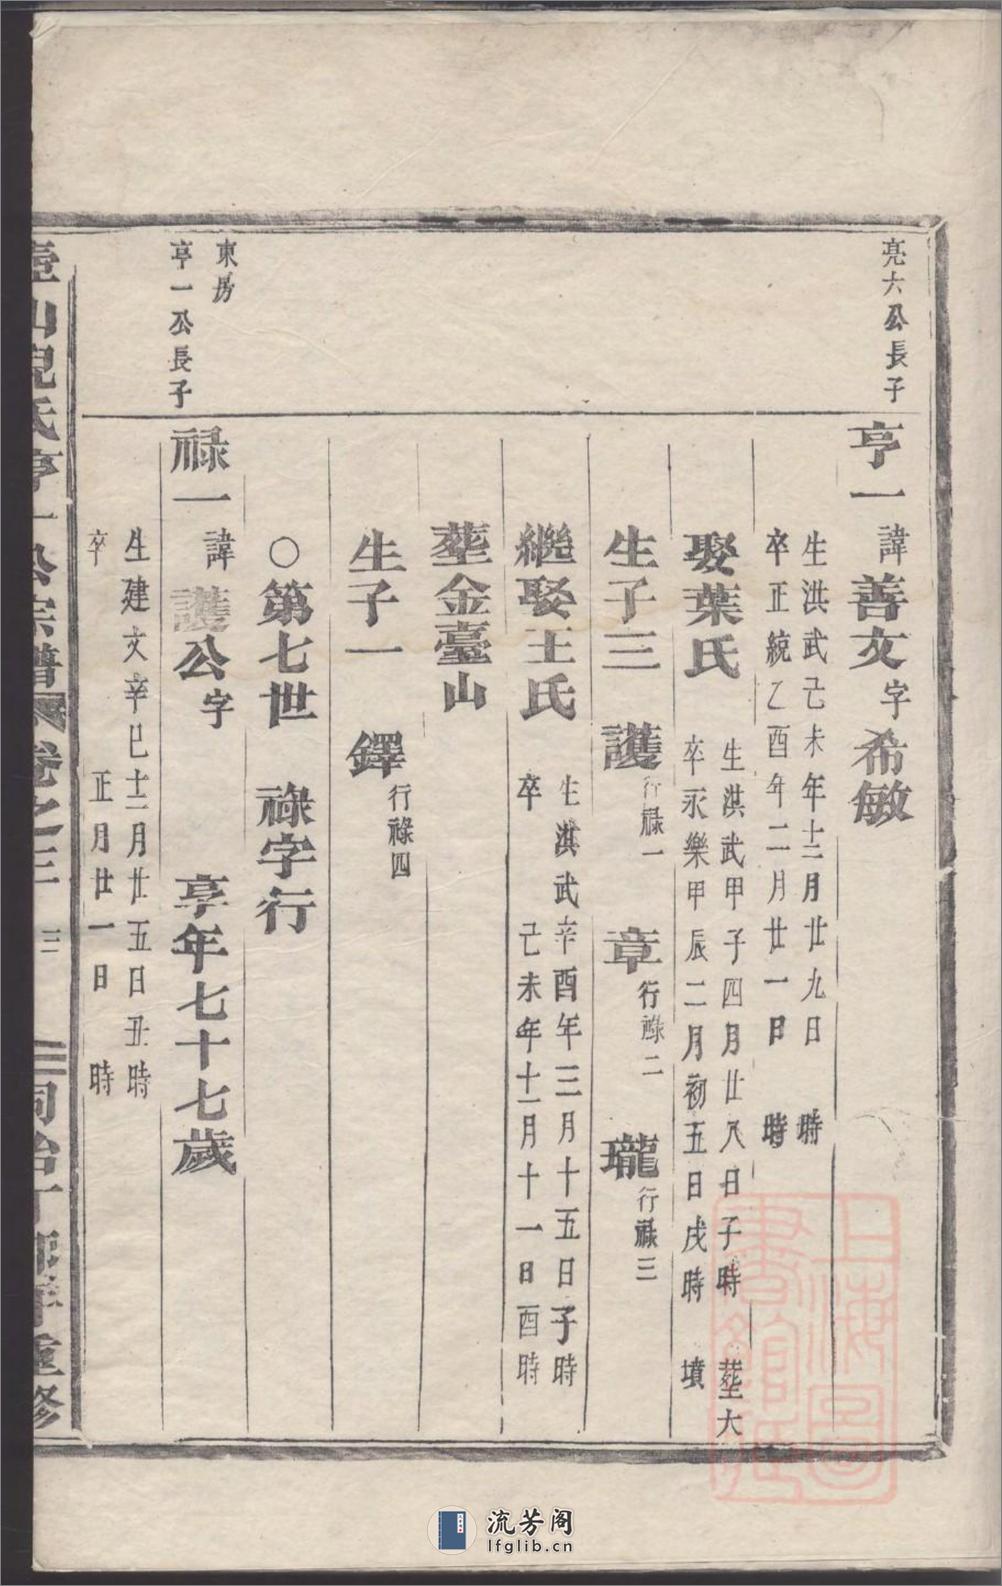 亮六公長子
亨一 諱善文字希敏
生洪武己未年十二月廿九日 時
卒正統乙酉年二月廿一日 時
娶葉氏 生洪武甲子四月廿八日子時 葬大
卒永樂甲辰二月初五日戌時 墳
生子三 護行祿一 章行祿二 瓏行祿三
繼娶王氏 生洪武辛酉年三月十五日子時
卒 己未年十一月十一日酉時
葬金臺山
生子一 鐸行祿四
○第七世 祿字行
東房
亨一公長子
祿一 諱護公字 享年七十七歲
生建文辛巳十二月廿五日丑時
卒 正月廿一日 時
壺山倪氏亨一公宗譜 卷之三 三 同治丁卯年重修
上海圖書館藏
流芳阁
lfglib.cn